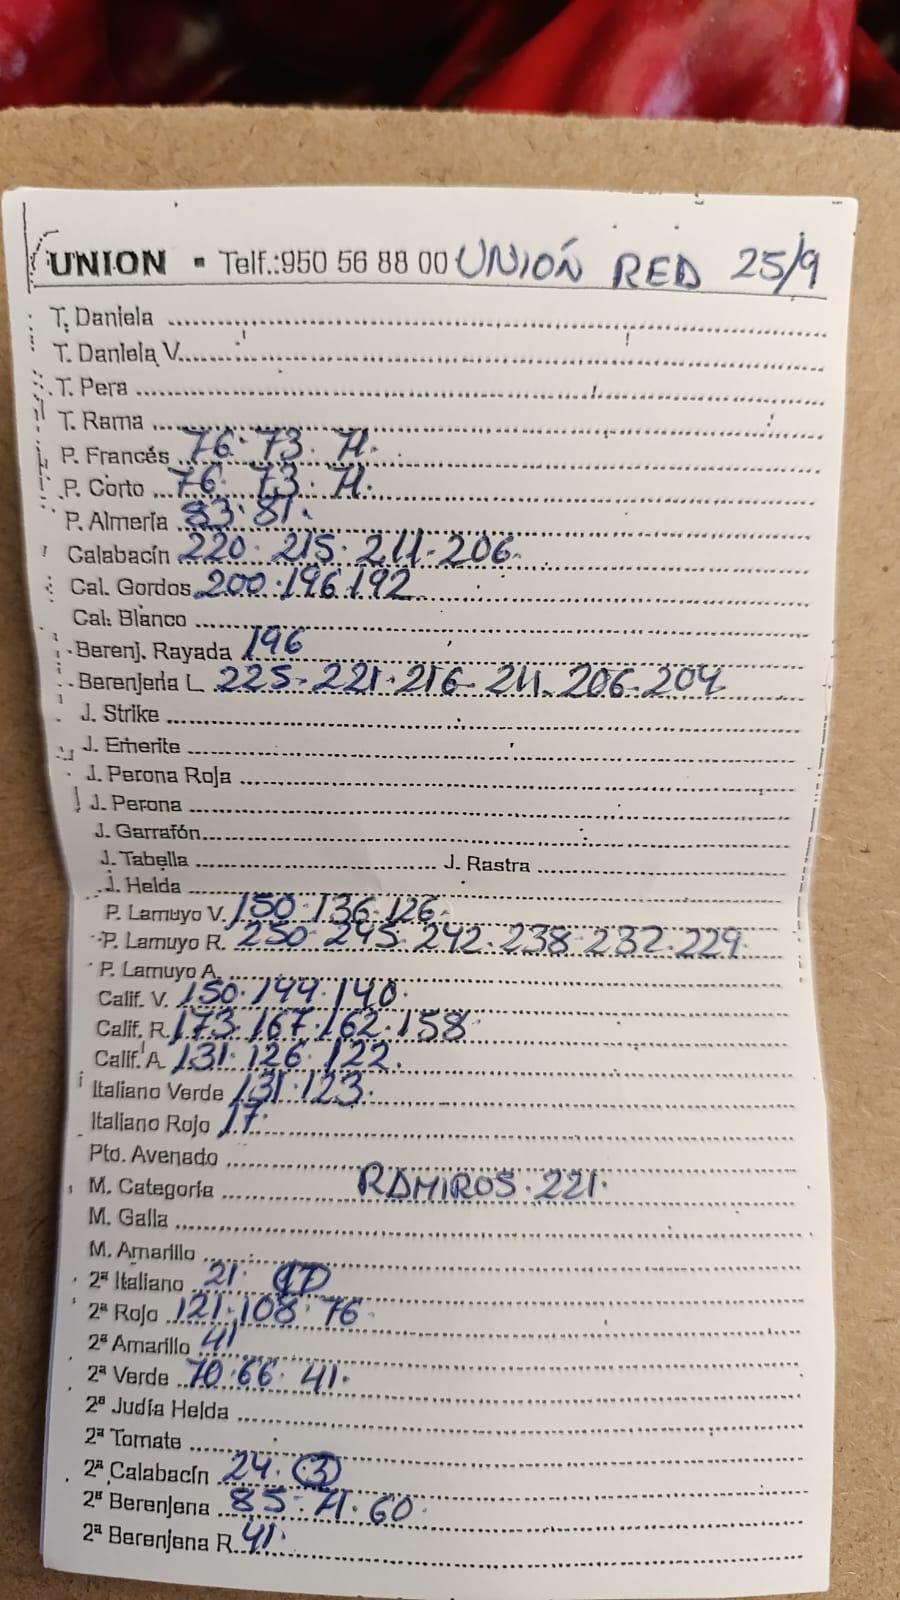 UNION - Telf.:950 56 88 00 UNIÓN RED 25/9
T. Daniela
T. Daniela V.
T. Pera
T. Rama
P. Francés 76. 73. 71.
P. Corto 76. 73. 71.
P. Almería 83. 81.
Calabacín 220. 215. 211. 206.
Cal. Gordos 200. 196. 192
Cal. Blanco
Berenj. Rayada 196
Berenjena L. 225. 221. 216. 211. 206. 204
J. Strike
J. Emerite
J. Perona Roja
J. Perona
J. Garrafón
J. Tabella J. Rastra
J. Helda
P. Lamuyo V. 150. 136. 126.
P. Lamuyo R. 250. 245. 242. 238. 232. 229.
P. Lamuyo A.
Calif. V. 150. 144. 140.
Calif. R. 173. 167. 162. 158.
Calif. A. 131. 126. 122.
Italiano Verde 131. 123.
Italiano Rojo 17.
Pto. Avenado
M. Categoría RAMIROS. 221.
M. Galia
M. Amarillo
2ª Italiano 21. 17
2ª Rojo 121. 108. 76.
2ª Amarillo 41
2ª Verde 70. 66. 41.
2ª Judía Helda
2ª Tomate
2ª Calabacín 24. 3
2ª Berenjena 85. 71. 60.
2ª Berenjena R. 41.